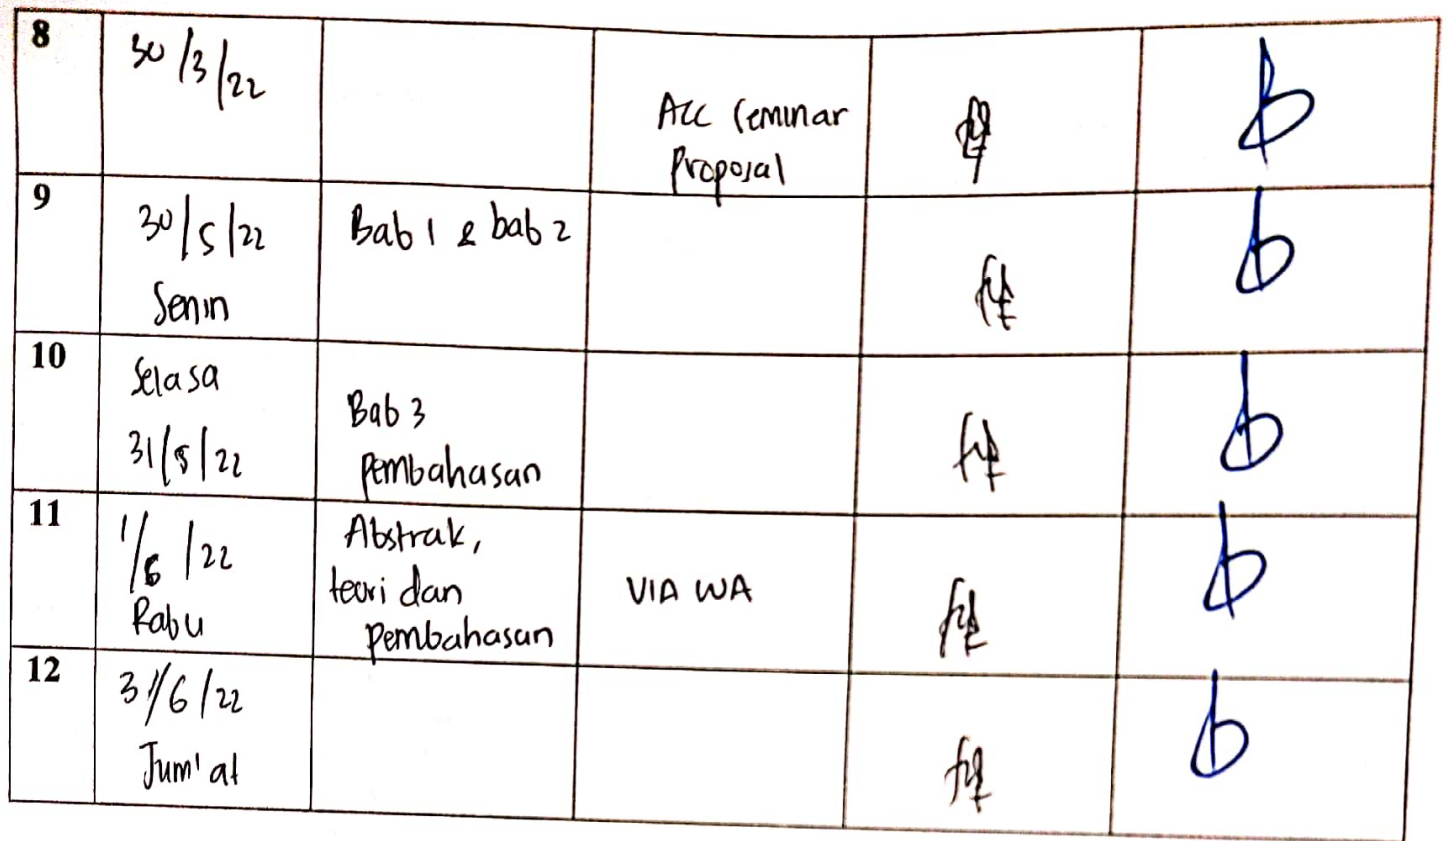 8
30/3/22
ACC Seminar
Proposal
9
30/5/22
Senin
Bab 1 & bab 2
10
Selasa
31/5/22
Bab 3
pembahasan
11
1/6/22
Rabu
Abstrak,
teori dan
pembahasan
VIA WA
12
3/6/22
Jum'at